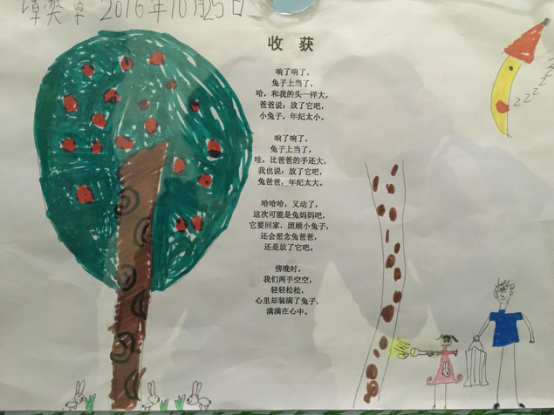 2016年10月25日
收 获
响了响了，
兔子上当了，
哈，和我的头一样大，
爸爸说：放了它吧，
小兔子，年纪太小。
响了响了，
兔子上当了，
哇，比爸爸的手还大，
我也说：放了它吧，
兔爸爸，年纪太大，
哈哈哈，又动了，
这次可能是兔妈妈吧，
它要回家，照顾小兔子，
还会想念兔爸爸，
还是放了它吧。
傍晚时，
我们两手空空，
轻轻松松，
心里却装满了兔子，
满满在心中。
zzzz